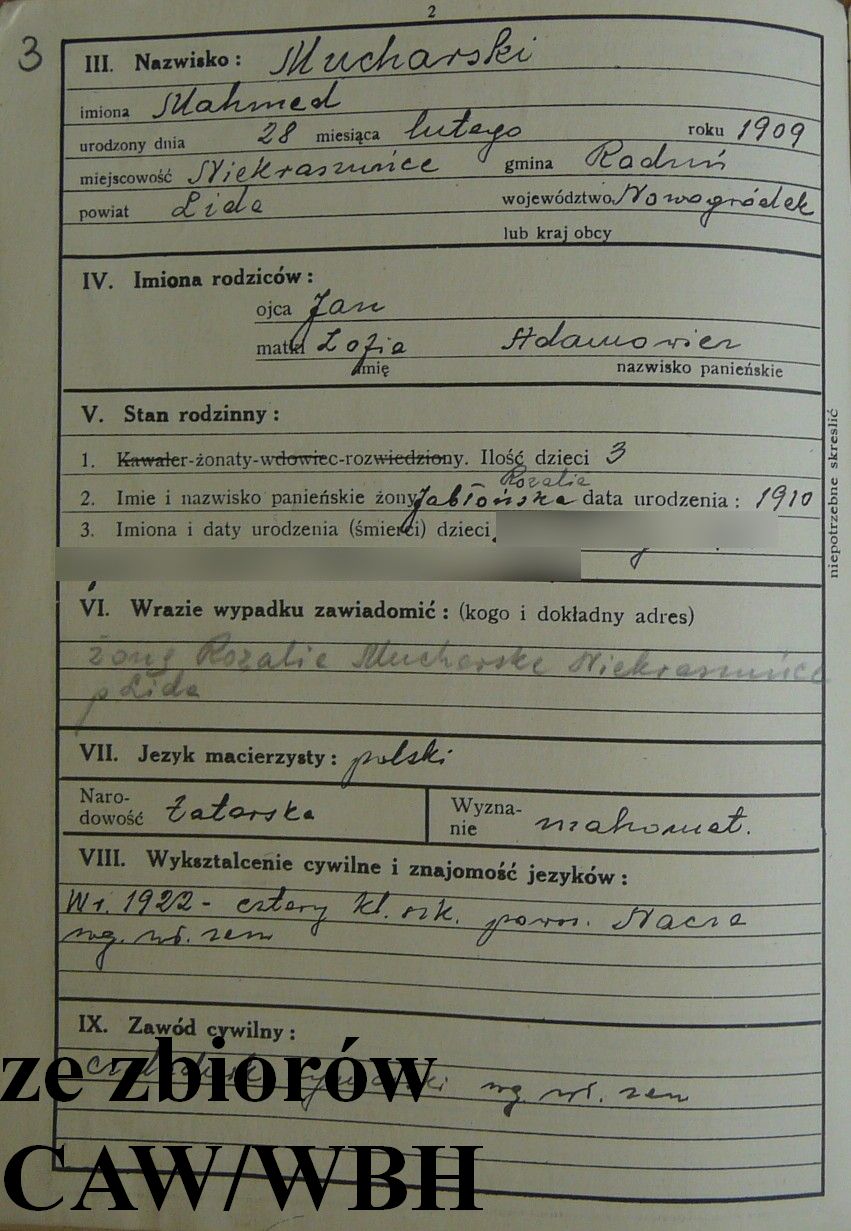 2
3
III. Nazwisko: Mucharski
imiona Mahmed
urodzony dnia 28 miesiąca lutego roku 1909
miejscowość Niekraszuńce gmina Raduń
powiat Lida województwo Nowogródek
lub kraj obcy
IV. Imiona rodziców:
ojca Jan
matki Zofia Adamowicz
imię nazwisko panieńskie
V. Stan rodzinny:
1. Kawaler-żonaty-wdowiec-rozwiedziony. Ilość dzieci 3
Rozalia
2. Imie i nazwisko panieńskie żony Jabłońska data urodzenia: 1910
3. Imiona i daty urodzenia (śmierci) dzieci
niepotrzebne skreślić
VI. Wrazie wypadku zawiadomić: (kogo i dokładny adres)
żonę Rozalie Mucharske Niekraszuńce
p Lida
VII. Jezyk macierzysty: polski
Naro-
dowość tatarska
Wyzna-
nie mahomet.
VIII. Wyksztalcenie cywilne i znajomość jezyków:
W r. 1922 - cztery kl. szk. pows. Nacza
wg. wł. zezn
IX. Zawód cywilny:
wg. wł. zezn
ze zbiorów
CAW/WBH